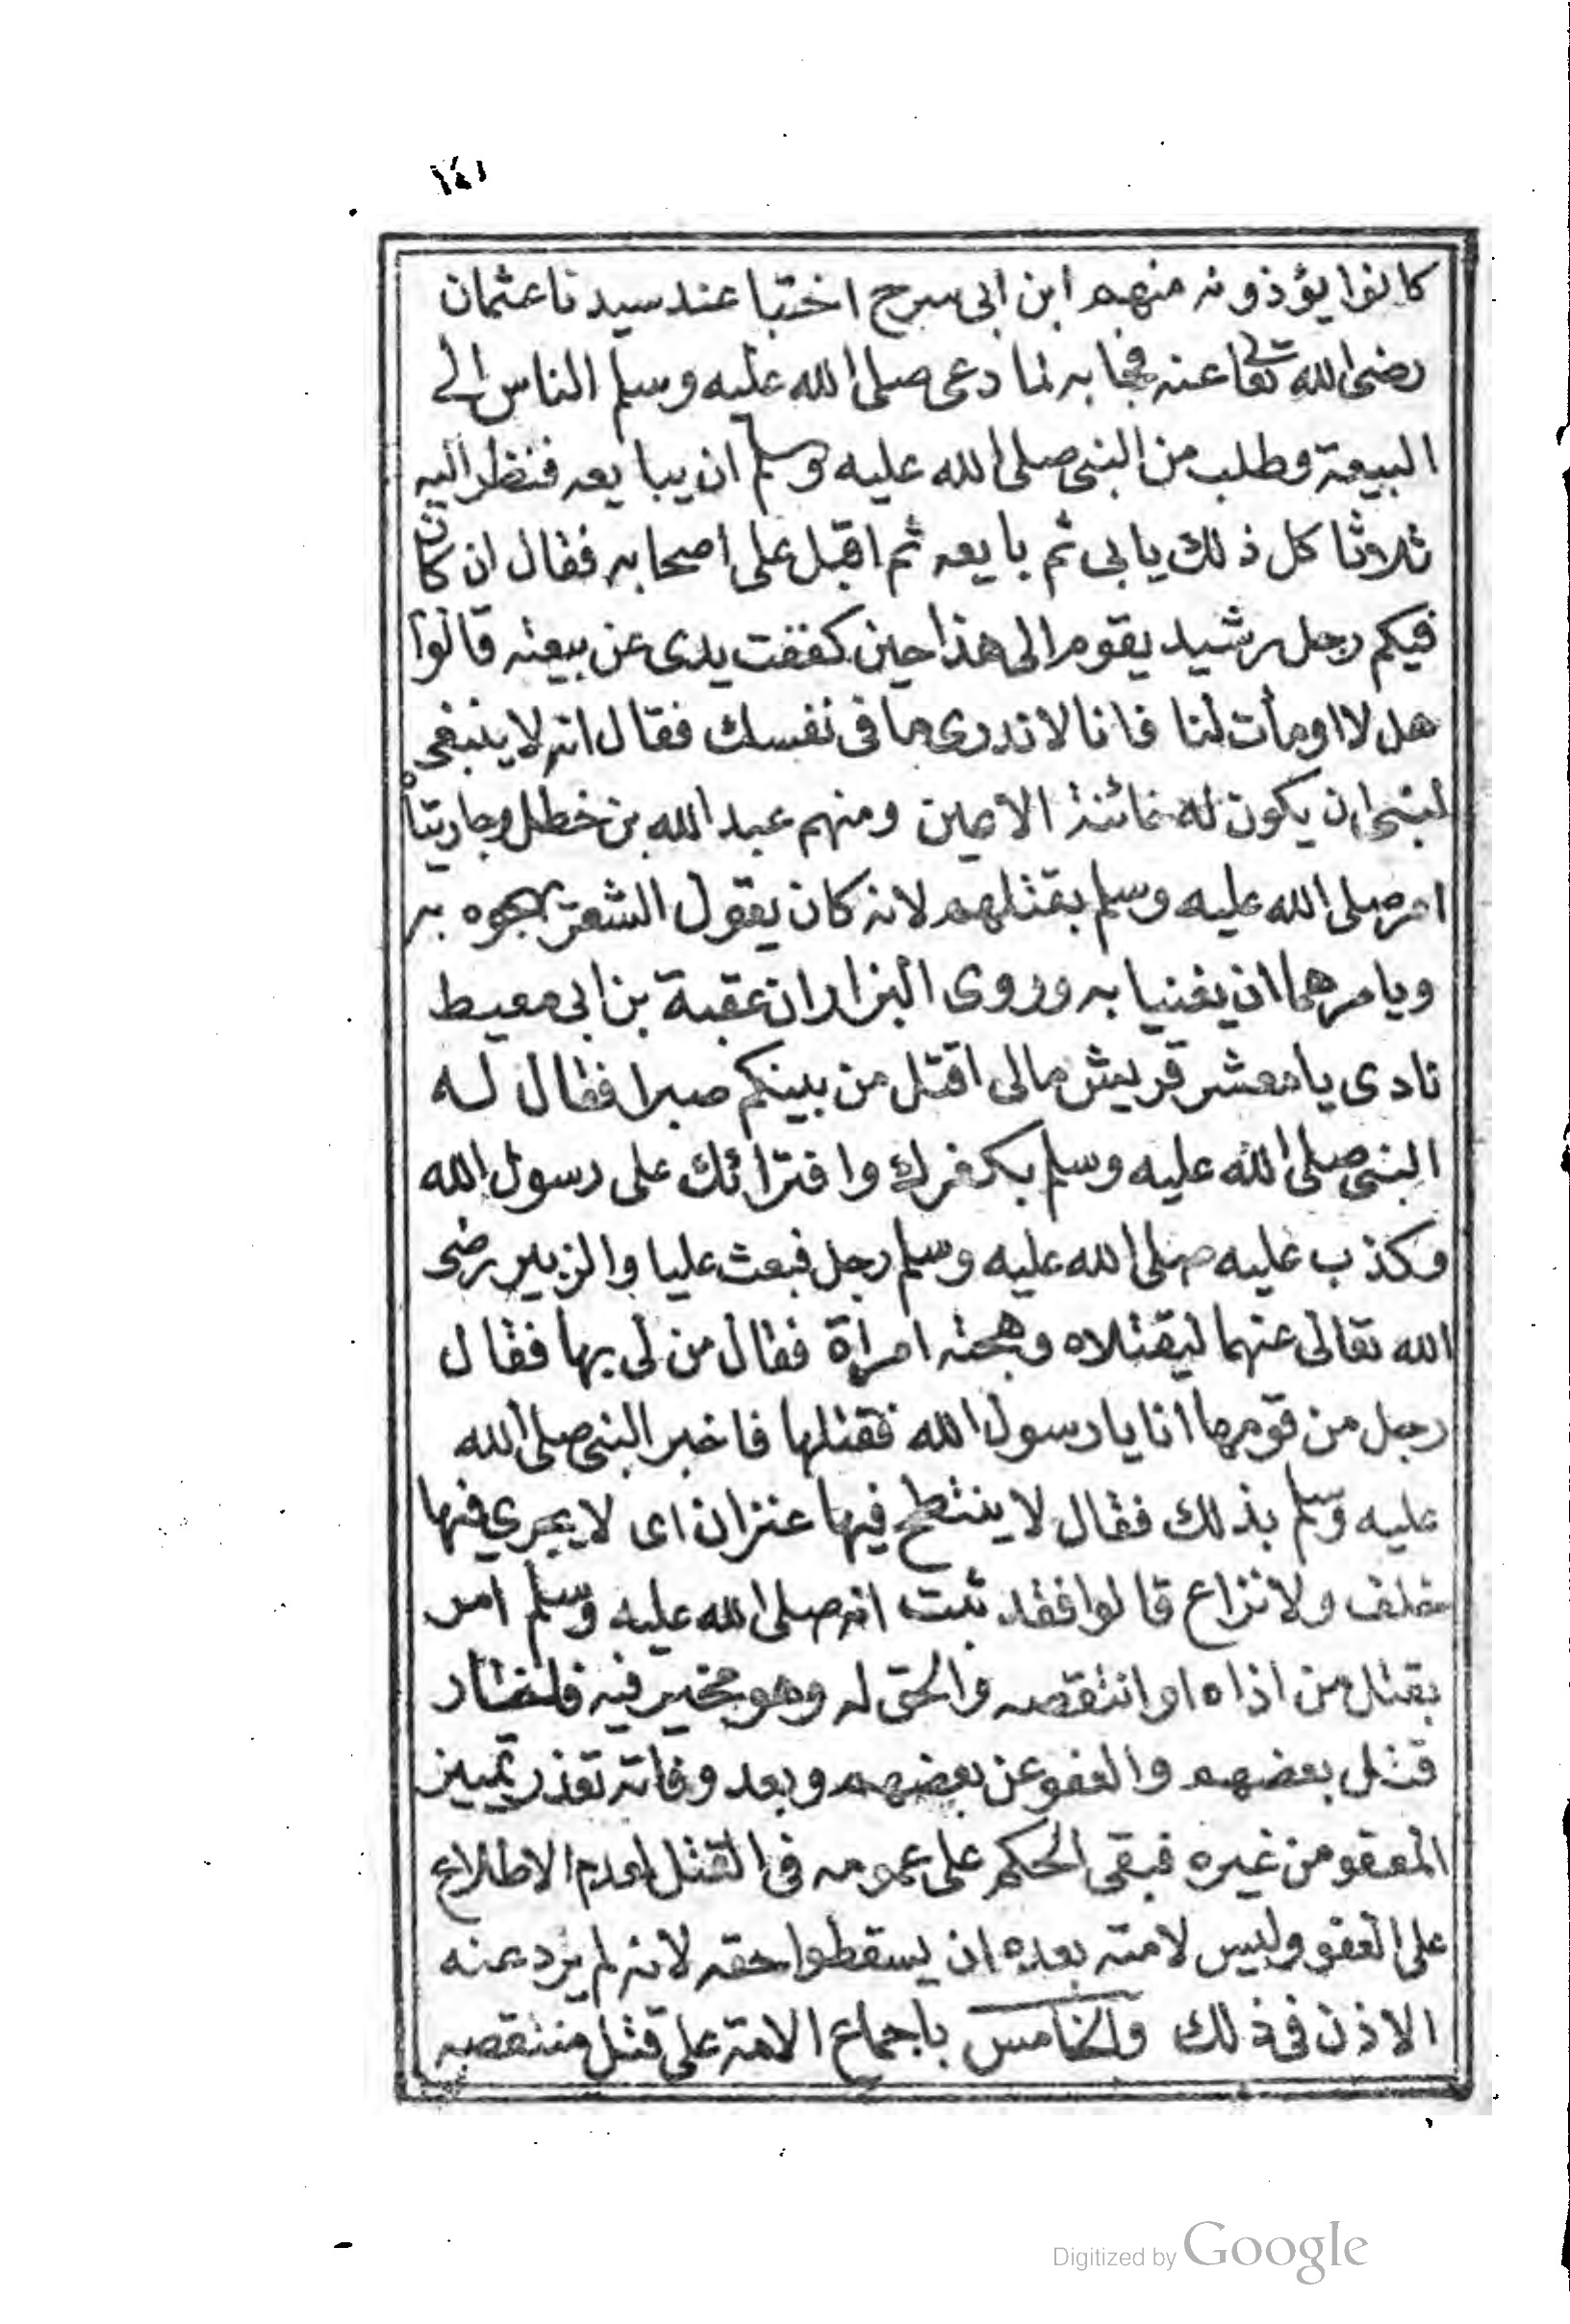 ١٤١
كانوا يؤذونه منهم ابن ابى سرح اختبا عند سيدنا عثمان
رضى الله تعالى عنه فجا به لما دعى صلى الله عليه وسلم الناس الى
البيعة وطلب من النبى صلى الله عليه وسلم ان يبايعه فنظر اليه
ثلاوثا كل ذلك يابى ثم بايعه ثم اقبل على اصحابه فقال ان كان
فيكم رجل رشيد يقوم الى هذا حين كففت يدى عن بيعته قالوا
هل لا اومأت لنا فانا لا ندرى ما فى نفسك فقال انه لا ينبغى
لنبى ان يكون له خائنة الاعين ومنهم عبد الله بن خطل وجاريتاه
امر صلى الله عليه وسلم بقتلهم لانه كان يقول الشعر يهجوه به
ويامرهما ان يغنيا به وروى البزار ان عقبة بن ابى معيط
نادى يا معشر قريش مالى اقتل من بينكم صبرا فقال له
النبى صلى الله عليه وسلم بكفرك وافترائك على رسول الله
وكذب عليه صلى الله عليه وسلم رجل فبعث عليا والزبير رضى
الله تعالى عنهما ليقتلاه وهجته امرأة فقال من لى بها فقال
رجل من قومها انا يا رسول الله فقتلها فاخبر النبى صلى الله
عليه وسلم بذلك فقال لا ينتطح فيها عنزان اى لا يجري فيها
خلف ولا نزاع قالوا فقد ثبت انه صلى الله عليه وسلم امر
بقتل من اذاه او انتقصه والحق له وهو مخير فيه فاختار
قتل بعضهم والعفو عن بعضهم وبعد وفاته تعذر تمييز
المعفو من غيره فبقى الحكم على عمومه فى القتل لعدم الاطلاع
على العفو وليس لامته بعده ان يسقطوا حقه لانه لم يرد عنه
الاذن فى ذلك والخامس باجماع الامة على قتل منتقصه
Digitized by Google